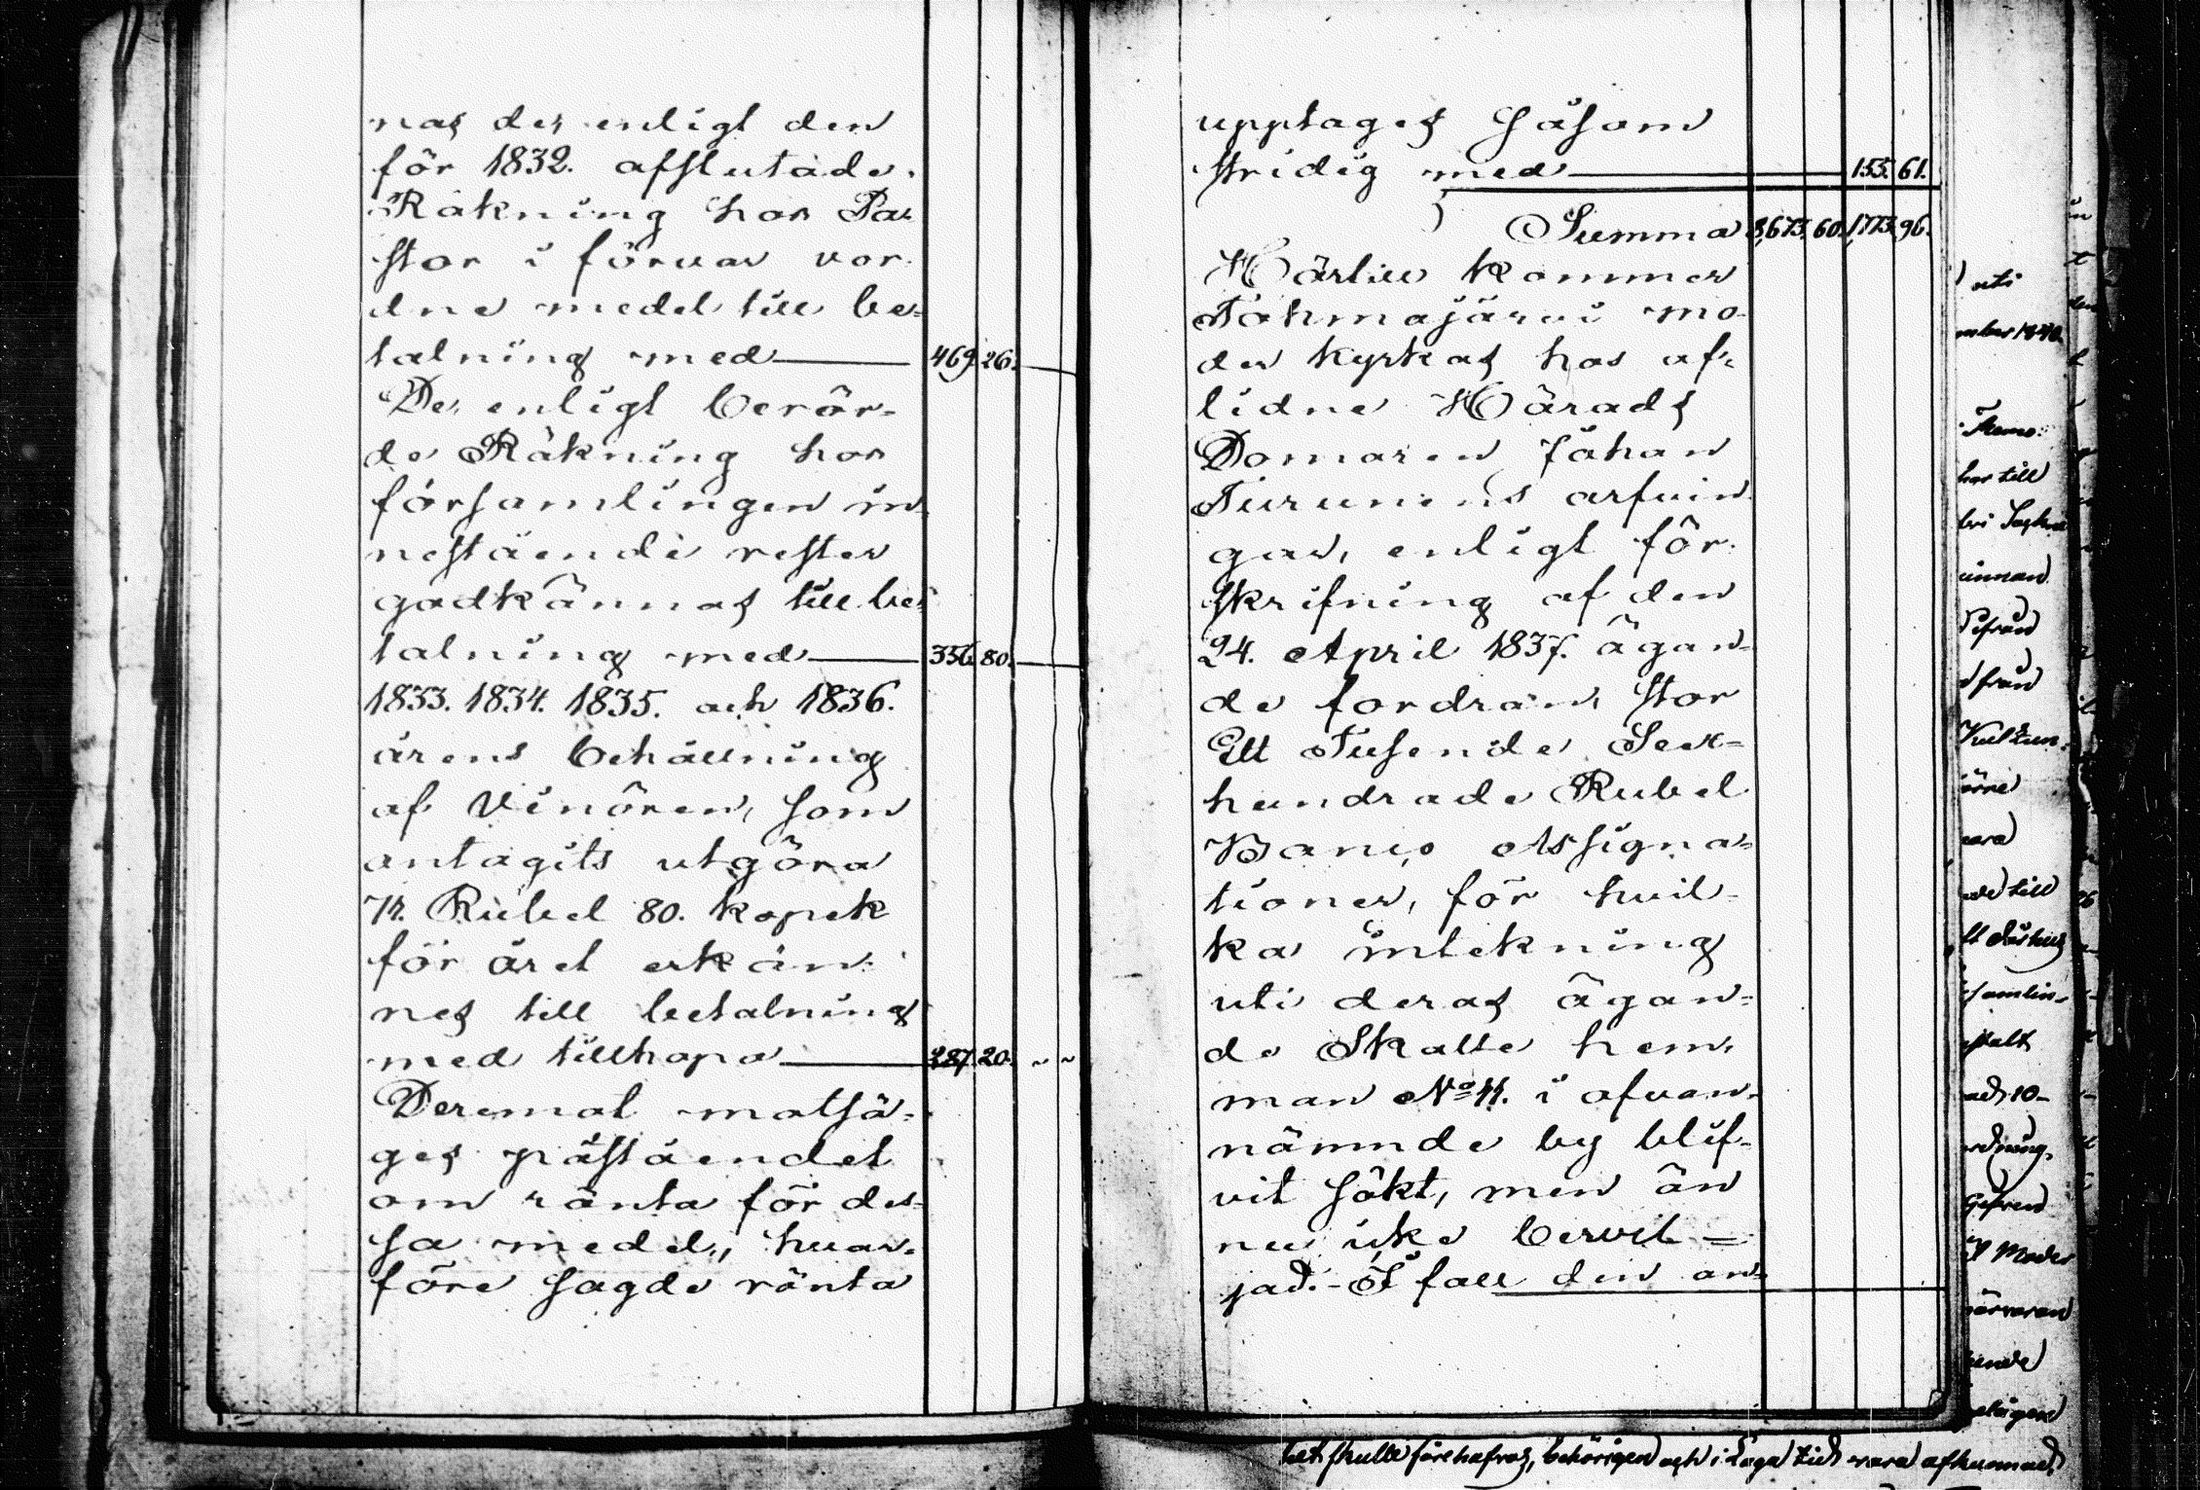 nas de, enligt den
för 1832. afslutade
Räkning hos Pa-
stor i förvar vor-
dne medel till be-
talning med 469. 26.
De, enligt berör-
de Räkning hos
församlingen in-
nestående rester
godkännas till be-
talning med 336. 80.
1833. 1834. 1835. och 1836.
årens behållning
af Vinören, som
antagits utgöra
71. Rubel 80. kopek
för året erkän-
nes till betalning
med tillhopa 287. 20.
Deremot motsä-
ges påståendet
om ränta för des-
sa medel, hvar-
före sagde ränta
upptages såsom
stridig med 155. 61.
Summa 3,673. 60. 1,773. 96.
Härtill kommer
Tohmajärvi mo-
der kyrkas hos af-
lidne Härads
Domaren Johan
Turunens arfvin-
gar, enligt för-
skrifning af den
24. April 1837. ägan-
de fordran, stor
Ett Tusende Sex-
hundrade Rubel
Banco Assigna-
tioner, för hvil-
ka intekning
uti deras ägan-
de Skatte hem-
man No 11. i ofvan-
nämnde by blif-
vit sökt, men än
nu icke bevil-
jad. - I fall den an-
uti
till
från
till
10
Moder
het skulle förehafvas, behörigen och i laga tid vara afkunnad,